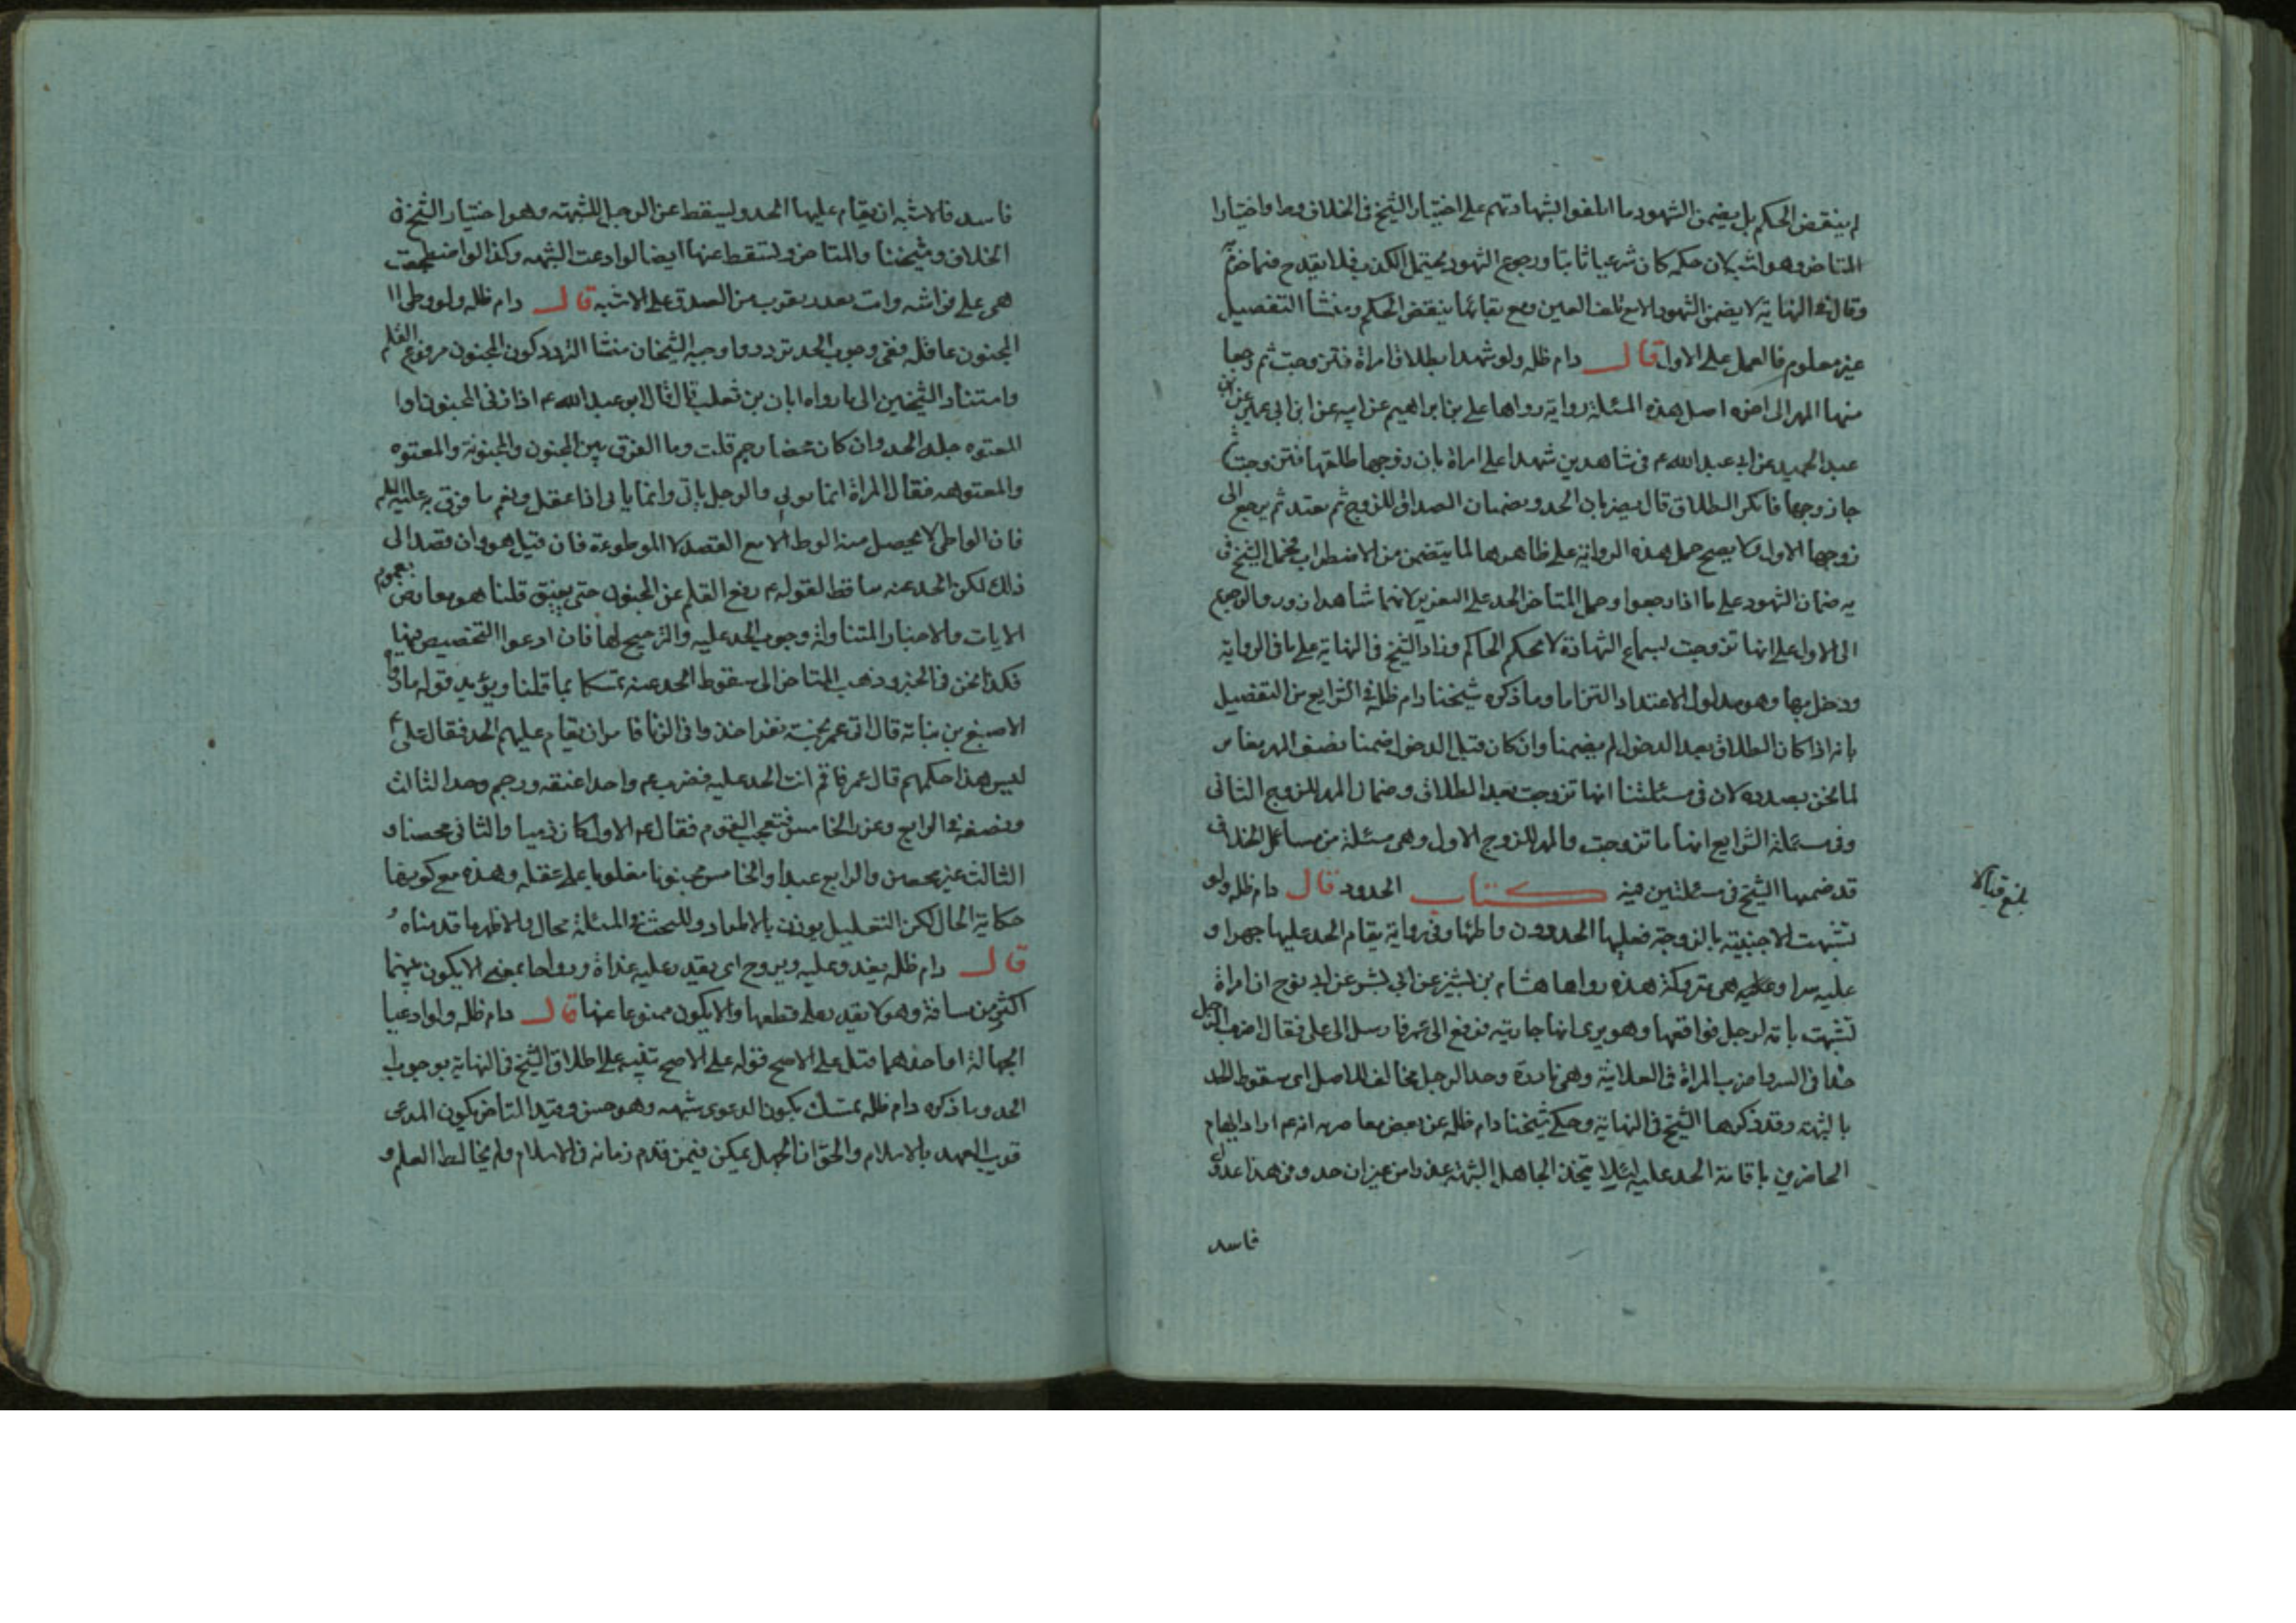 لم ينقض الحكم بل يضمن الشهود ما اتلفوا لشهادتهم على اختيار الشيخ فى الخلاف وط واختيار
المتاخر وهو اشبه لان حكمه كان شرعيا ثابتا ورجوع الشهود يحتمل الكذب فلا يقدح فيما
وقال فى النهاية لا يضمن الشهود الا مع تلف العين ومع بقائها ينقض الحكم ومنشأ التفصيل
غير معلوم فالعمل على الاول قال دام ظله ولو شهدا بطلاق امراة فتزوجت ثم رجعا
منها المهر الى اخره اصل هذه المسئلة رواية رواها على بن ابراهيم عن ابيه عن ابن ابى عمير عن
عبد الحميد عن ابى عبد الله ع فى شاهدين شهدا على امراة بان زوجها طلقها فتزوجت ثم
جا زوجها فانكر الطلاق قال يضربان الحد ويضمنان الصداق للزوج ثم يعتد ثم يرجع الى
زوجها الاول ولا يصح حمل هذه الرواية على ظاهرها لما يتضمن من الاضطراب فحمل الشيخ فى
يه ضمان الشهود على ما اذا رجعوا وحمل المتاخر الحد على التعزير لانهما شاهدا زور والرجوع
الى الاول على انها تزوجت لسماع الشهادة لا بحكم الحاكم وزاد الشيخ فى النهاية على ما فى الرواية
ودخل بها وهو مدلول الاعتداد التزاما وما ذكره شيخنا دام ظله فى الشرايع من التفصيل
بانه اذا كان الطلاق بعد الدخول لم يضمنا وان كان قبل الدخول ضمنا نصف المهر مغاير
لما نحن بصدده لان فى مسئلتنا انها تزوجت بعد الطلاق وضمان المهر للزوج الثانى
وفى مسئلة الشرايع انها ما تزوجت والمهر للزوج الاول وهى مسئلة من مسائل الخلاف
قد ضمها الشيخ فى مسئلتين فيه كتاب الحدود قال دام ظله ولو
تشبهت الاجنبية بالزوجة فعليها الحد دون واطئها وفى رواية يقام الحد عليها جهرا و
عليه سرا وهى متروكة هذه رواها هشام بن بشير عن ابى بشر عن ابى نوح ان امراة
تشبهت بامة لرجل فواقعها وهو يرى انها جاريته فرفع الى عمر فارسل الى على فقال اضرب الرجل
حدا فى السر واضرب المراة فى العلانية وهى نادرة وحد الرجل مخالف للاصل اى سقوط الحد
بالشبهة وقد ذكرها الشيخ فى النهاية وحكى شيخنا دام ظله عن بعض معاصريه انه ع اراد ايهام
الحاضرين باقامة الحد عليه لئلا يتخذ الجاهل الشبهة عذرا من غير ان حد وفى هذا عذر
فاسد
بلغ قبالا
فاسد فالاشبه ان يقام عليها الحد ويسقط عن الرجل للشبهة وهو اختيار الشيخ فى
الخلاف وشيخنا والمتاخر ويسقط عنها ايضا لو ادعت الشبهه وكذا لو اضطجعت
هى على فراشه واتت بعذر يقرب من الصدق على الاشبه قال دام ظله ولو وطى ا
المجنون عاقلة ففى وجوب الحد تردد واوجبه الشيخان منشا التردد كون المجنون مرفوع القلم
واستناد الشيخين الى ما رواه ابان بن تغلب قال قال ابو عبد الله ع اذا زنى المجنون او ا
المعتوه جلد الحد وان كان محصنا رجم قلت وما الفرق بين المجنون والمجنونة والمعتوه
والمعتوهه فقال المراة انما توتى والرجل ياتى وانما ياتى اذا عقل ونعم ما فرق به عليه السلم
فان الواطى لا يحصل منه الوطء الا مع القصد لا الموطوءة فان قيل هو وان قصد الى
ذلك لكن الحد عنه ساقط لقوله ع رفع القلم عن المجنون حتى يفيق قلنا هو معارض بعموم
الايات والاخبار المتناولة وجوب الحد عليه والترجيح لها فان ادعوا التخصيص فيها
فكذا نحن فى الخبر وذهب المتاخر الى سقوط الحد عنه تمسكا بما قلنا ويؤيد قوله ما رواه
الاصبغ بن نباتة قال اتى عمر بخمسة نفر اخذوا فى الزنا فامر ان يقام عليهم الحد فقال على ع
ليس هذا حكمهم قال عمر فاقم انت الحد عليه فضرب ع واحدا عنقه ورجم وحد الثالث
ونصفه فى الرابع وعزر الخامس فتعجب القوم فقال ع الاول كان ذميا والثانى محصنا و
الثالث غير محصن والرابع عبدا والخامس مجنونا مغلوبا على عقله وهذه مع كونها
حكاية الحال لكن التعليل يؤذن بالاطراد وللبحث فى المسئلة مجال والاظهر ما قدمناه
قال دام ظله يغدو عليه ويروح اى يقدر عليه غداة ورواحا بمعنى الا يكون بينهما
اكثر من مسافة وهو لا يقدر على قطعها والا يكون ممنوعا عنها قال دام ظله ولو ادعيا
الجهالة او احدهما قبل على الاصح فقوله على الاصح تنبيه على اطلاق الشيخ فى النهاية بوجوب
الحد وما ذكره دام ظله تمسك بكون الدعوى شبهه وهو حسن وقيد المتاخر بكون المدعى
قريب العهد بالاسلام والحق ان الجهل يمكن فيمن قدم زمانه فى الاسلام ولم يخالط العلم و